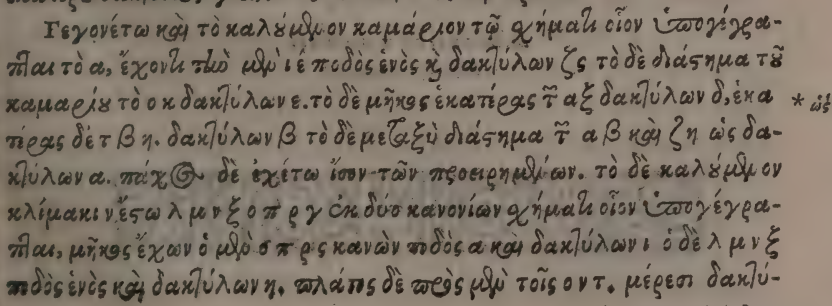 Γεγονέτω καὶ τὸ καλούμενον καμάριον τῷ σχήματι οἷον ὑπογέγρα-
πται τὸ α, ἔχοντι τὴν μὲν ιέ ποδὸς ἑνὸς κὶ δακτύλων ζς τὸ δὲ διάστημα τοῦ
καμαρίου τὸ ο κ δακτύλων ε. τὸ δὲ μῆκος ἑκατέρας τ̃ αξ δακτύλων δ, ἑκα * ὡς
τέρας δὲ τ β η. δακτύλων β τὸ δὲ μεταξὺ διάστημα τ̃ α β καὶ ζη ὡς δα-
κτύλων α. πάχος δὲ ἐχέτω ἴσον τῶν προειρημένων. τὸ δὲ καλούμενον
κλίμακιν ἔστω λ μ ν ξ ο π ρ γ ἐκ δύο κανονίων σχήματι οἷον ὑπογέγρα-
πται, μῆκος ἔχων ὁ μὲν σ π ρς κανὼν ποδὸς α καὶ δακτύλων ι ὁ δὲ λ μ ν ξ
ποδὸς ἑνὸς καὶ δακτύλων η. πλάτος δὲ πρὸς μὲν τοῖς ο ν τ. μέρεσι δακτύ-